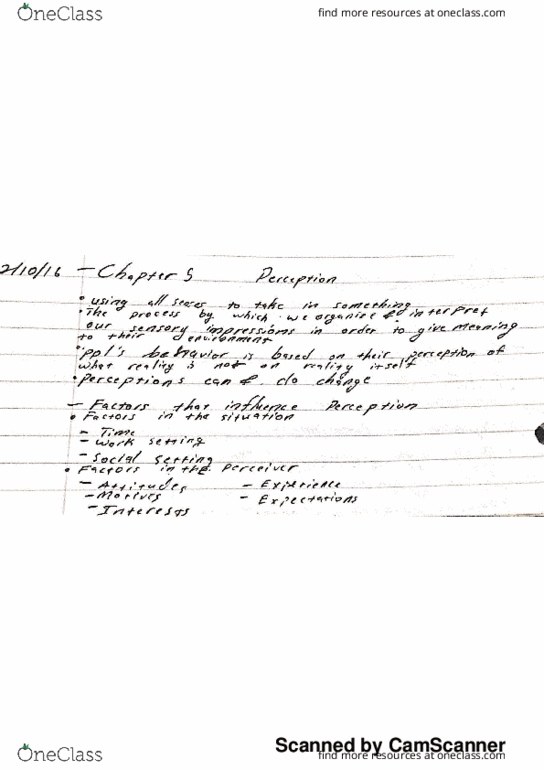 OneClass
find more resources at oneclass.com
2/10/16 - Chapter 5 Perception
• using all senses to take in something
• The process by which we organize & interpret
our sensory impressions in order to give meaning
to their environment
• ppl's behavior is based on their perception of
what reality is not on reality itself
• perceptions can & do change
- Factors that influence Perception
• Factors in the situation
- Time
- work setting
- Social setting
• Factors in the perceiver
- Attitudes - Experience
- Motives - Expectations
- Interests
Scanned by CamScanner
OneClass
find more resources at oneclass.com